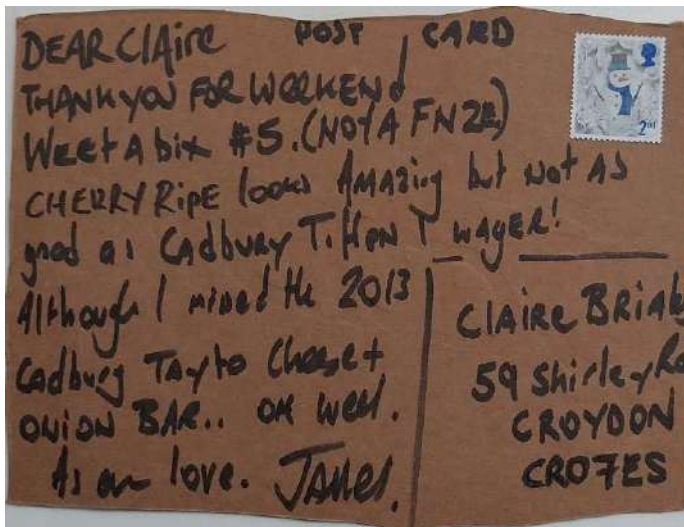 POST CARD
DEAR Claire
THANK YOU FOR WEEKEND
Weetabix #5. (NOT A FNZE)
CHERRY RIPE looks Amazing but not AS
good as CADBURY Tiffon I WAGER!
Although I missed the 2013
Cadbury Tayto Cheese +
ONION BAR.. OH Well.
As ever love. James.
2nd
Claire BRIALEY
59 Shirley Ro
CROYDON
CR0 7ES